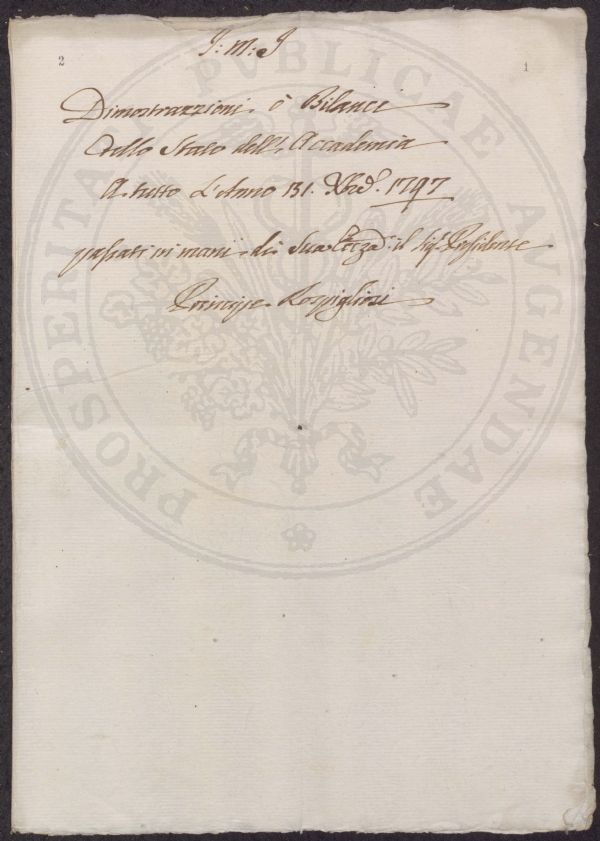 J: M: J
2
1
Dimostrazzioni ò Bilanci
dello Stato dell' Accademia
A tutto L'Anno 131. Xbrê. 1797
passati in mani di Sua Ecczâ il Sigr. Presidente
Principe Rospigliosi
PROSPERITATI PVBLICAE AVGENDAE